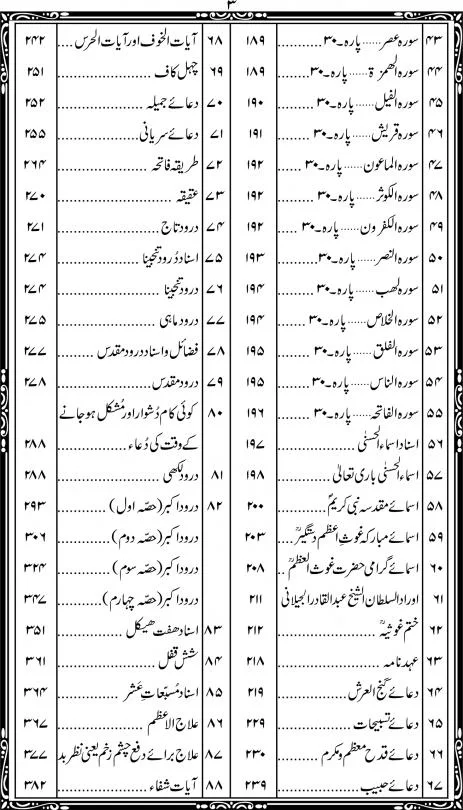 ۳
۴۳ سورہ عصر...... پارہ۔۳۰ ............ ۱۸۹
۴۴ سورہ الھمزۃ ...... پارہ۔۳۰ ............ ۱۸۹
۴۵ سورہ الفیل ...... پارہ۔۳۰ ............ ۱۹۰
۴۶ سورہ قریش ...... پارہ۔۳۰ ............ ۱۹۱
۴۷ سورہ الماعون ...... پارہ۔۳۰ ............ ۱۹۲
۴۸ سورہ الکوثر ...... پارہ۔۳۰ ............ ۱۹۲
۴۹ سورہ الکفرون ...... پارہ۔۳۰ ............ ۱۹۲
۵۰ سورہ النصر ...... پارہ۔۳۰ ............ ۱۹۳
۵۱ سورہ لھب ...... پارہ۔۳۰ ............ ۱۹۴
۵۲ سورہ الخلاص ...... پارہ۔۳۰ ............ ۱۹۴
۵۳ سورہ الفلق ...... پارہ۔۳۰ ............ ۱۹۵
۵۴ سورہ الناس ...... پارہ۔۳۰ ............ ۱۹۵
۵۵ سورہ الفاتحہ ...... پارہ۔۳۰ ............ ۱۹۶
۵۶ اسناد اسماء الحسنٰی ............ ۱۹۷
۵۷ اسماء الحسنٰی باری تعالیٰ ............ ۱۹۸
۵۸ اسمائے مقدسہ نبی کریمؐ ............ ۲۰۰
۵۹ اسمائے مبارکہ غوثِ اعظم دستگیرؒ .... ۲۰۳
۶۰ اسمائے گرامی حضرت غوث العظمؒ .. ۲۰۸
۶۱ اوراد السلطان الشیخ عبدالقادر الجیلانی ۲۱۱
۶۲ ختم غوثیہؒ ............ ۲۱۲
۶۳ عہد نامہ ............ ۲۱۸
۶۴ دعائے گنج العرش ............ ۲۱۹
۶۵ دعائے تسبیحات ............ ۲۲۹
۶۶ دعائے قدح معظم و مکرم ............ ۲۳۰
۶۷ دعائے حبیب ............ ۲۳۹
۶۸ آیات الخوف اور آیات الحرس .... ۲۴۲
۶۹ چہل کاف ............ ۲۵۱
۷۰ دعائے جمیلہ ............ ۲۵۲
۷۱ دعائے سریانی ............ ۲۵۵
۷۲ طریقہ فاتحہ ............ ۲۶۴
۷۳ عقیقہ ............ ۲۷۰
۷۴ درود تاج ............ ۲۷۱
۷۵ اسناد دُرود تنجینا ............ ۲۷۴
۷۶ درود تنجینا ............ ۲۷۴
۷۷ درود ماہی ............ ۲۷۵
۷۸ فضائل و اسناد درود مقدس ............ ۲۷۷
۷۹ درود مقدس ............ ۲۷۸
۸۰ کوئی کام دُشوار اور مُشکل ہو جانے
کے وقت کی دُعاء ............ ۲۸۸
۸۱ درود لکھی ............ ۲۸۸
۸۲ درود اکبر (حصّہ اول) ............ ۲۹۳
درود اکبر (حصّہ دوم) ............ ۳۰۶
درود اکبر (حصّہ سوم) ............ ۳۲۴
درود اکبر (حصّہ چہارم) ............ ۳۴۷
۸۳ اسناد ھفت ھیکل ............ ۳۵۱
۸۴ شش قفل ............ ۳۶۱
۸۵ اسناد مُسبّعاتِ عشر ............ ۳۶۴
۸۶ علاج الاعظم ............ ۳۶۷
۸۷ علاج برائے دفع چشم زخم یعنی نظر بد ۳۷۷
۸۸ آیات شفاء ............ ۳۸۲